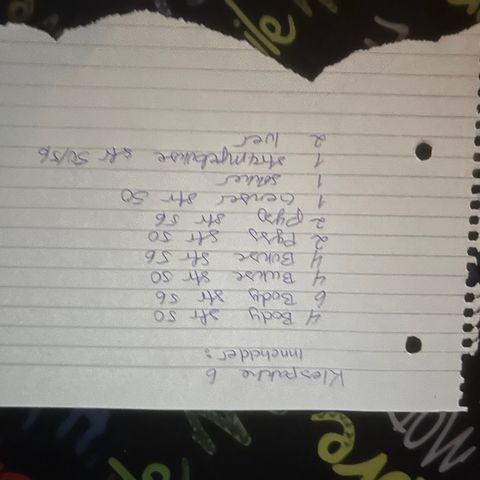 Klespakke 6
inneholder:
4 Body str 50
6 Body str 56
4 Bukse str 50
4 Bukse str 56
2 Pyss str 50
2 Pyso str 56
1 Genser str 50
1 sokker
1 strømpebukse str 50/56
2 luer